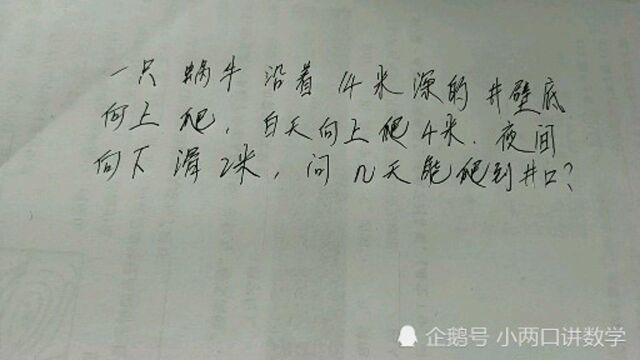 一只蜗牛沿着14米深的井壁底
向上爬，白天向上爬4米．夜间
向下滑2米，问几天能爬到井口？
企鹅号 小两口讲数学